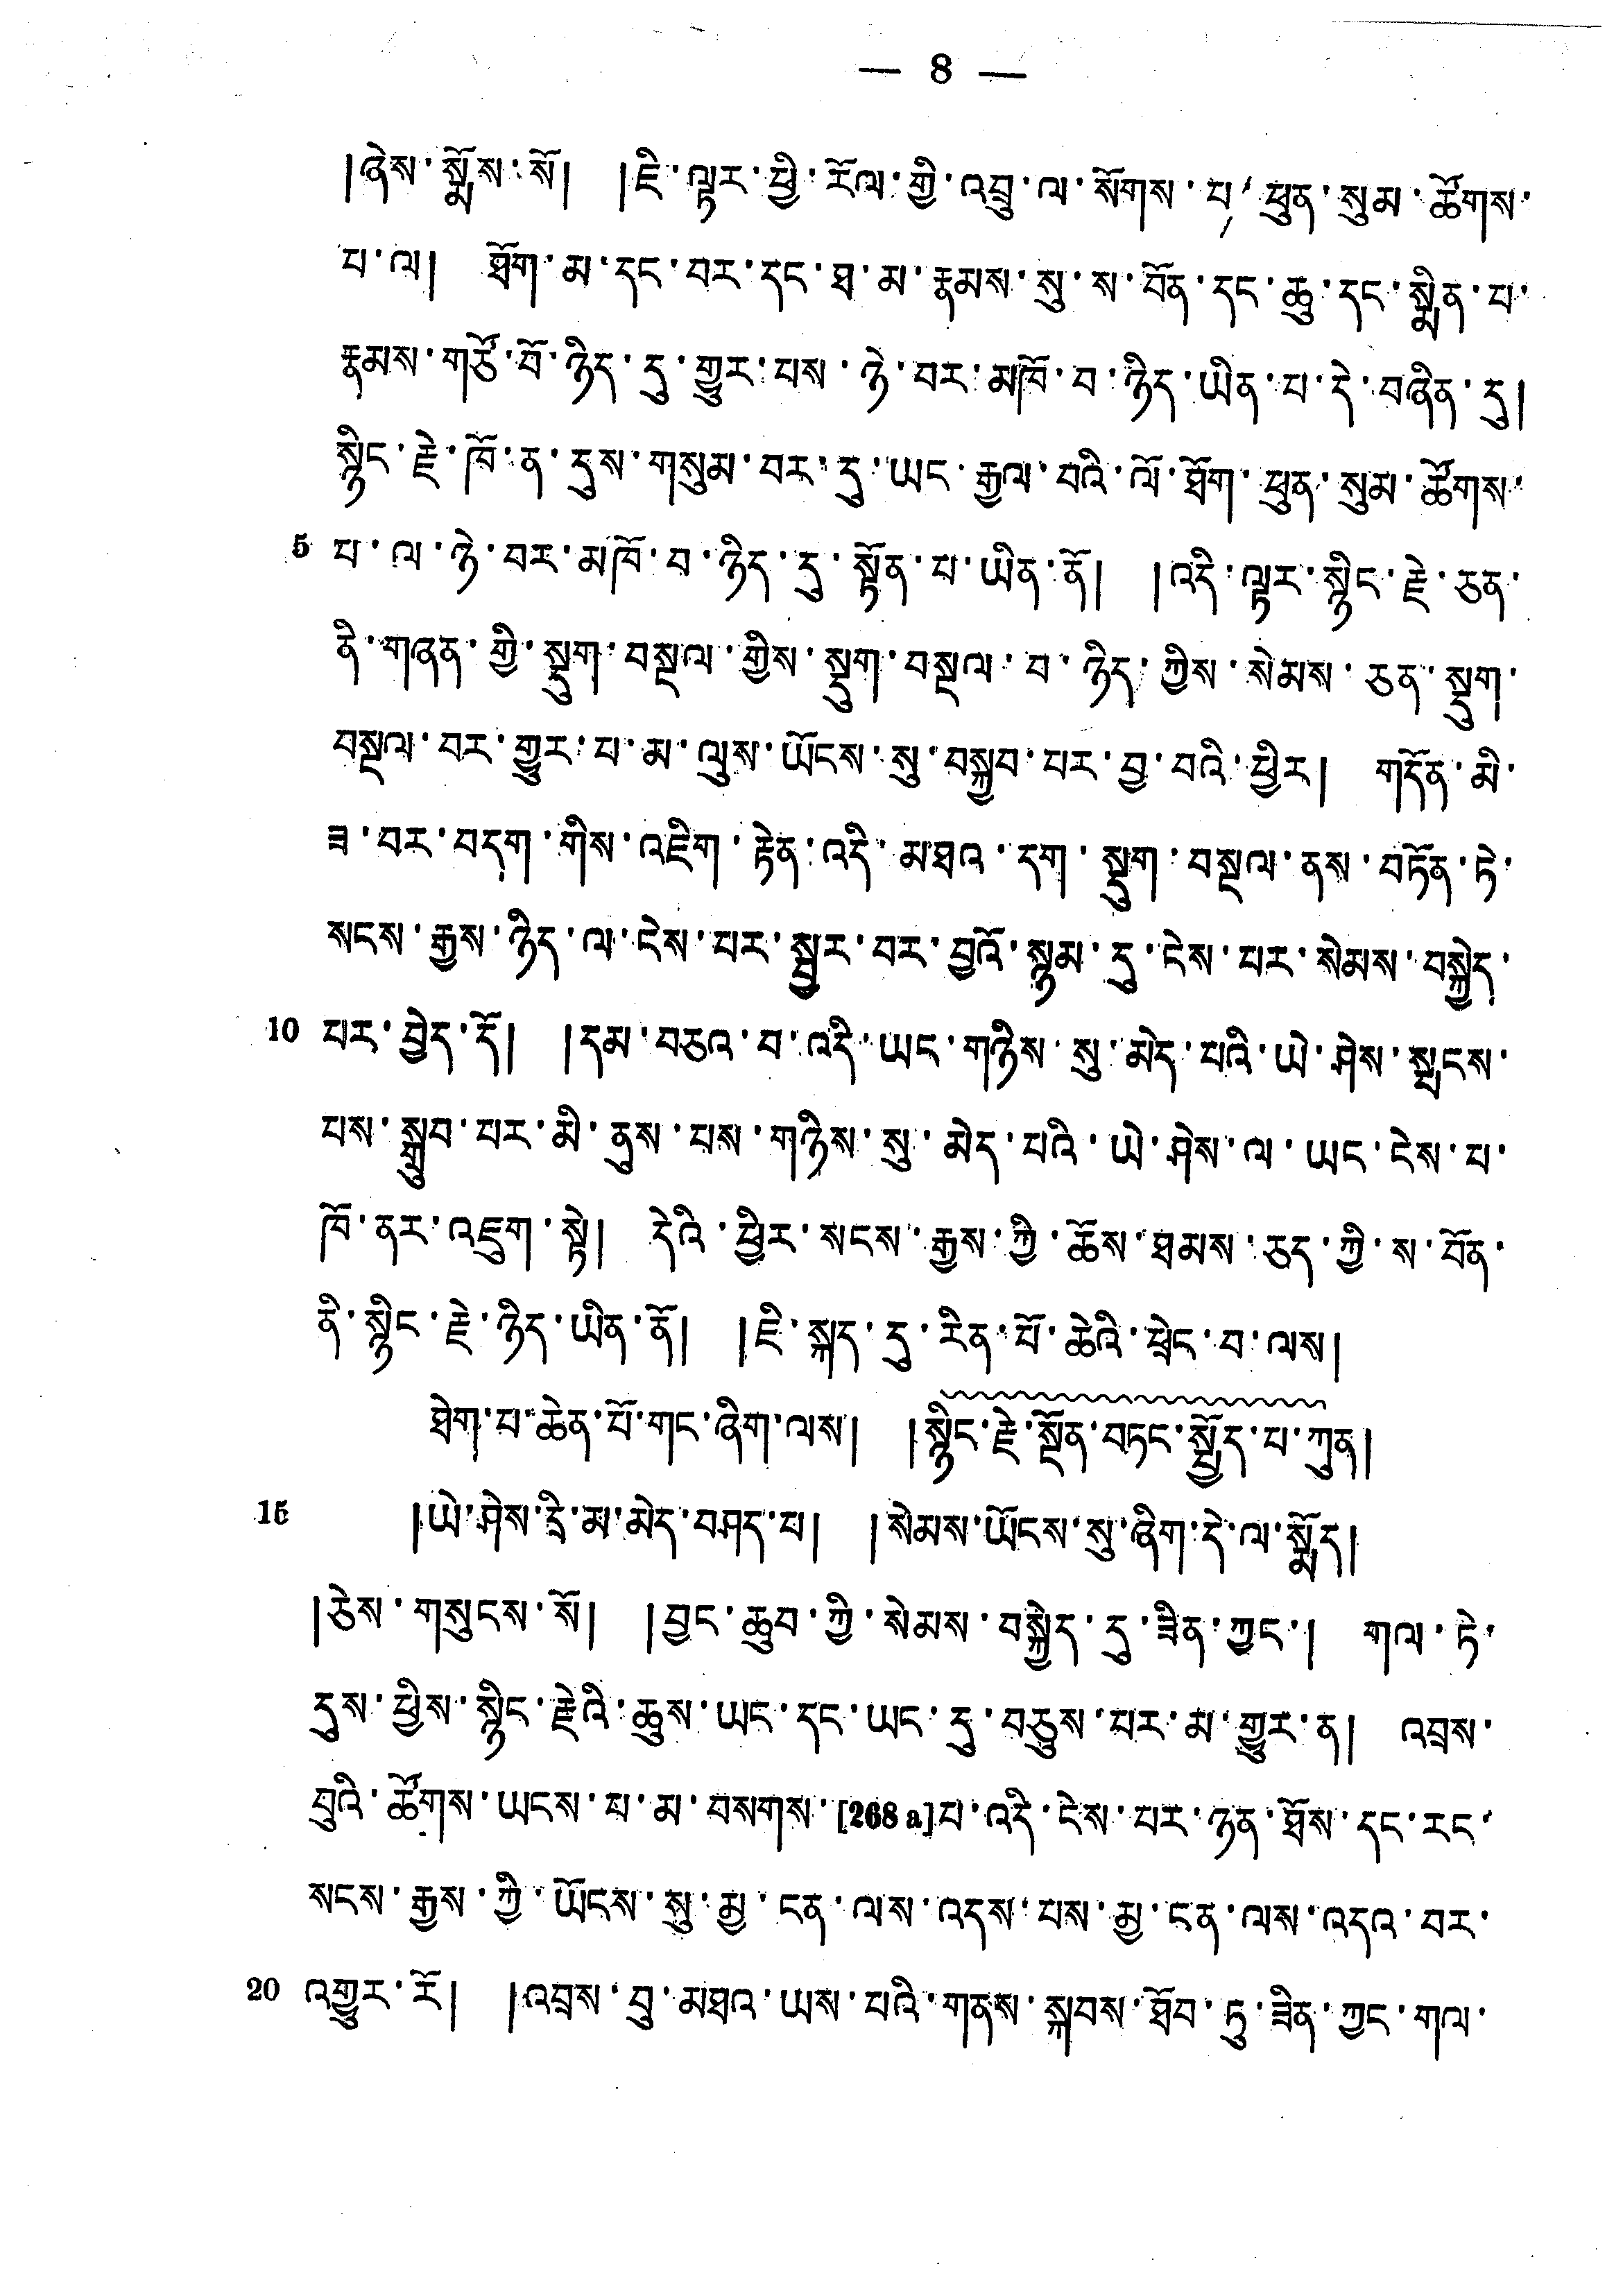 — 8 —
།ཞེས་སྨོས་སོ། །ཇི་ལྟར་ཕྱི་རོལ་གྱི་འབྲུ་ལ་སོགས་པ་ཕུན་སུམ་ཚོགས་
པ་ལ། ཐོག་མ་དང་བར་དང་ཐ་མ་རྣམས་སུ་ས་བོན་དང་ཆུ་དང་སྨིན་པ་
རྣམས་གཙོ་བོ་ཉིད་དུ་གྱུར་པས་ཉེ་བར་མཁོ་བ་ཉིད་ཡིན་པ་དེ་བཞིན་དུ།
སྙིང་རྗེ་ཁོ་ན་དུས་གསུམ་བར་དུ་ཡང་རྒྱལ་བའི་ལོ་ཐོག་ཕུན་སུམ་ཚོགས་
5 པ་ལ་ཉེ་བར་མཁོ་བ་ཉིད་དུ་སྟོན་པ་ཡིན་ནོ། །འདི་ལྟར་སྙིང་རྗེ་ཅན་
ནི་གཞན་གྱི་སྡུག་བསྔལ་གྱིས་སྡུག་བསྔལ་བ་ཉིད་ཀྱིས་སེམས་ཅན་སྡུག་
བསྔལ་བར་གྱུར་པ་མ་ལུས་ཡོངས་སུ་བསྐྱབ་པར་བྱ་བའི་ཕྱིར། གདོན་མི་
ཟ་བར་བདག་གིས་འཇིག་རྟེན་འདི་མཐའ་དག་སྡུག་བསྔལ་ནས་བཏོན་ཏེ་
སངས་རྒྱས་ཉིད་ལ་ངེས་པར་སྦྱར་བར་བྱའོ་སྙམ་དུ་ངེས་པར་སེམས་བསྐྱེད་
10 པར་བྱེད་དོ། །དམ་བཅའ་བ་འདི་ཡང་གཉིས་སུ་མེད་པའི་ཡེ་ཤེས་སྤངས་
པས་སྒྲུབ་པར་མི་ནུས་པས་གཉིས་སུ་མེད་པའི་ཡེ་ཤེས་ལ་ཡང་ངེས་པ་
ཁོ་ནར་འཇུག་སྟེ། དེའི་ཕྱིར་སངས་རྒྱས་ཀྱི་ཆོས་ཐམས་ཅད་ཀྱི་ས་བོན་
ནི་སྙིང་རྗེ་ཉིད་ཡིན་ནོ། །ཇི་སྐད་དུ་རིན་པོ་ཆེའི་ཕྲེང་བ་ལས།
ཐེག་པ་ཆེན་པོ་གང་ཞིག་ལས། །སྙིང་རྗེ་སྔོན་བཏང་སྤྱོད་པ་ཀུན།
15 །ཡེ་ཤེས་དྲི་མ་མེད་བཤད་པ། །སེམས་ཡོངས་སུ་ཞིག་དེ་ལ་སྨོད།
།ཅེས་གསུངས་སོ། །བྱང་ཆུབ་ཀྱི་སེམས་བསྐྱེད་དུ་ཟིན་ཀྱང་། གལ་ཏེ་
དུས་ཕྱིས་སྙིང་རྗེའི་ཆུས་ཡང་དང་ཡང་དུ་བཅུས་པར་མ་གྱུར་ན། འབྲས་
བུའི་ཚོགས་ཡངས་པ་མ་བསགས་[268 a]པ་འདི་ངེས་པར་ཉན་ཐོས་དང་རང་
སངས་རྒྱས་ཀྱི་ཡོངས་སུ་མྱ་ངན་ལས་འདས་པས་མྱ་ངན་ལས་འདའ་བར་
20 འགྱུར་རོ། །འབྲས་བུ་མཐའ་ཡས་པའི་གནས་སྐབས་ཐོབ་ཏུ་ཟིན་ཀྱང་གལ་